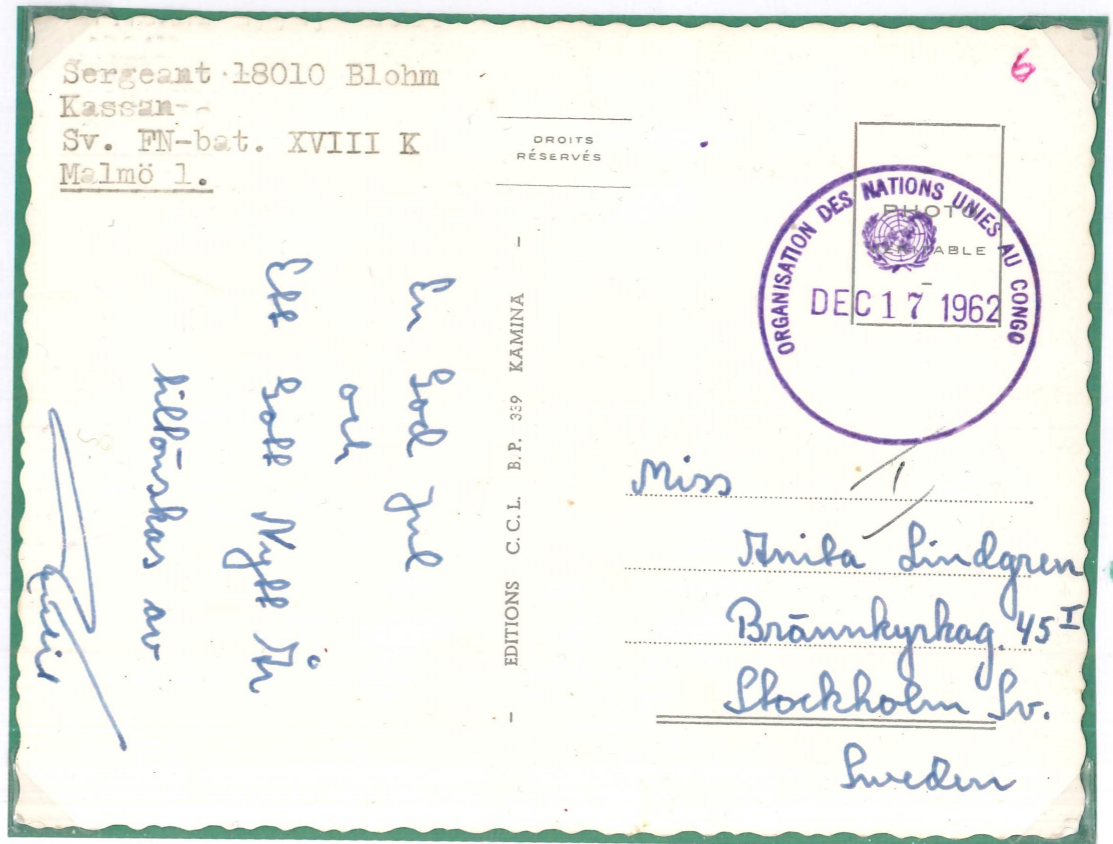 Sergeant 18010 Blohm
Kassan--
Sv. FN-bat. XVIII K
Malmö 1.
DROITS
RÉSERVÉS
6
PHOTO
VÉRITABLE
ORGANISATION DES NATIONS UNIES AU CONGO
DEC 17 1962
En God Jul
och
Ett Gott Nytt År
tillönskas av
EDITIONS C.C.L. B.P. 339 KAMINA
Miss
Anita Lindgren
Brännkyrkag. 45 I
Stockholm Sv.
Sweden